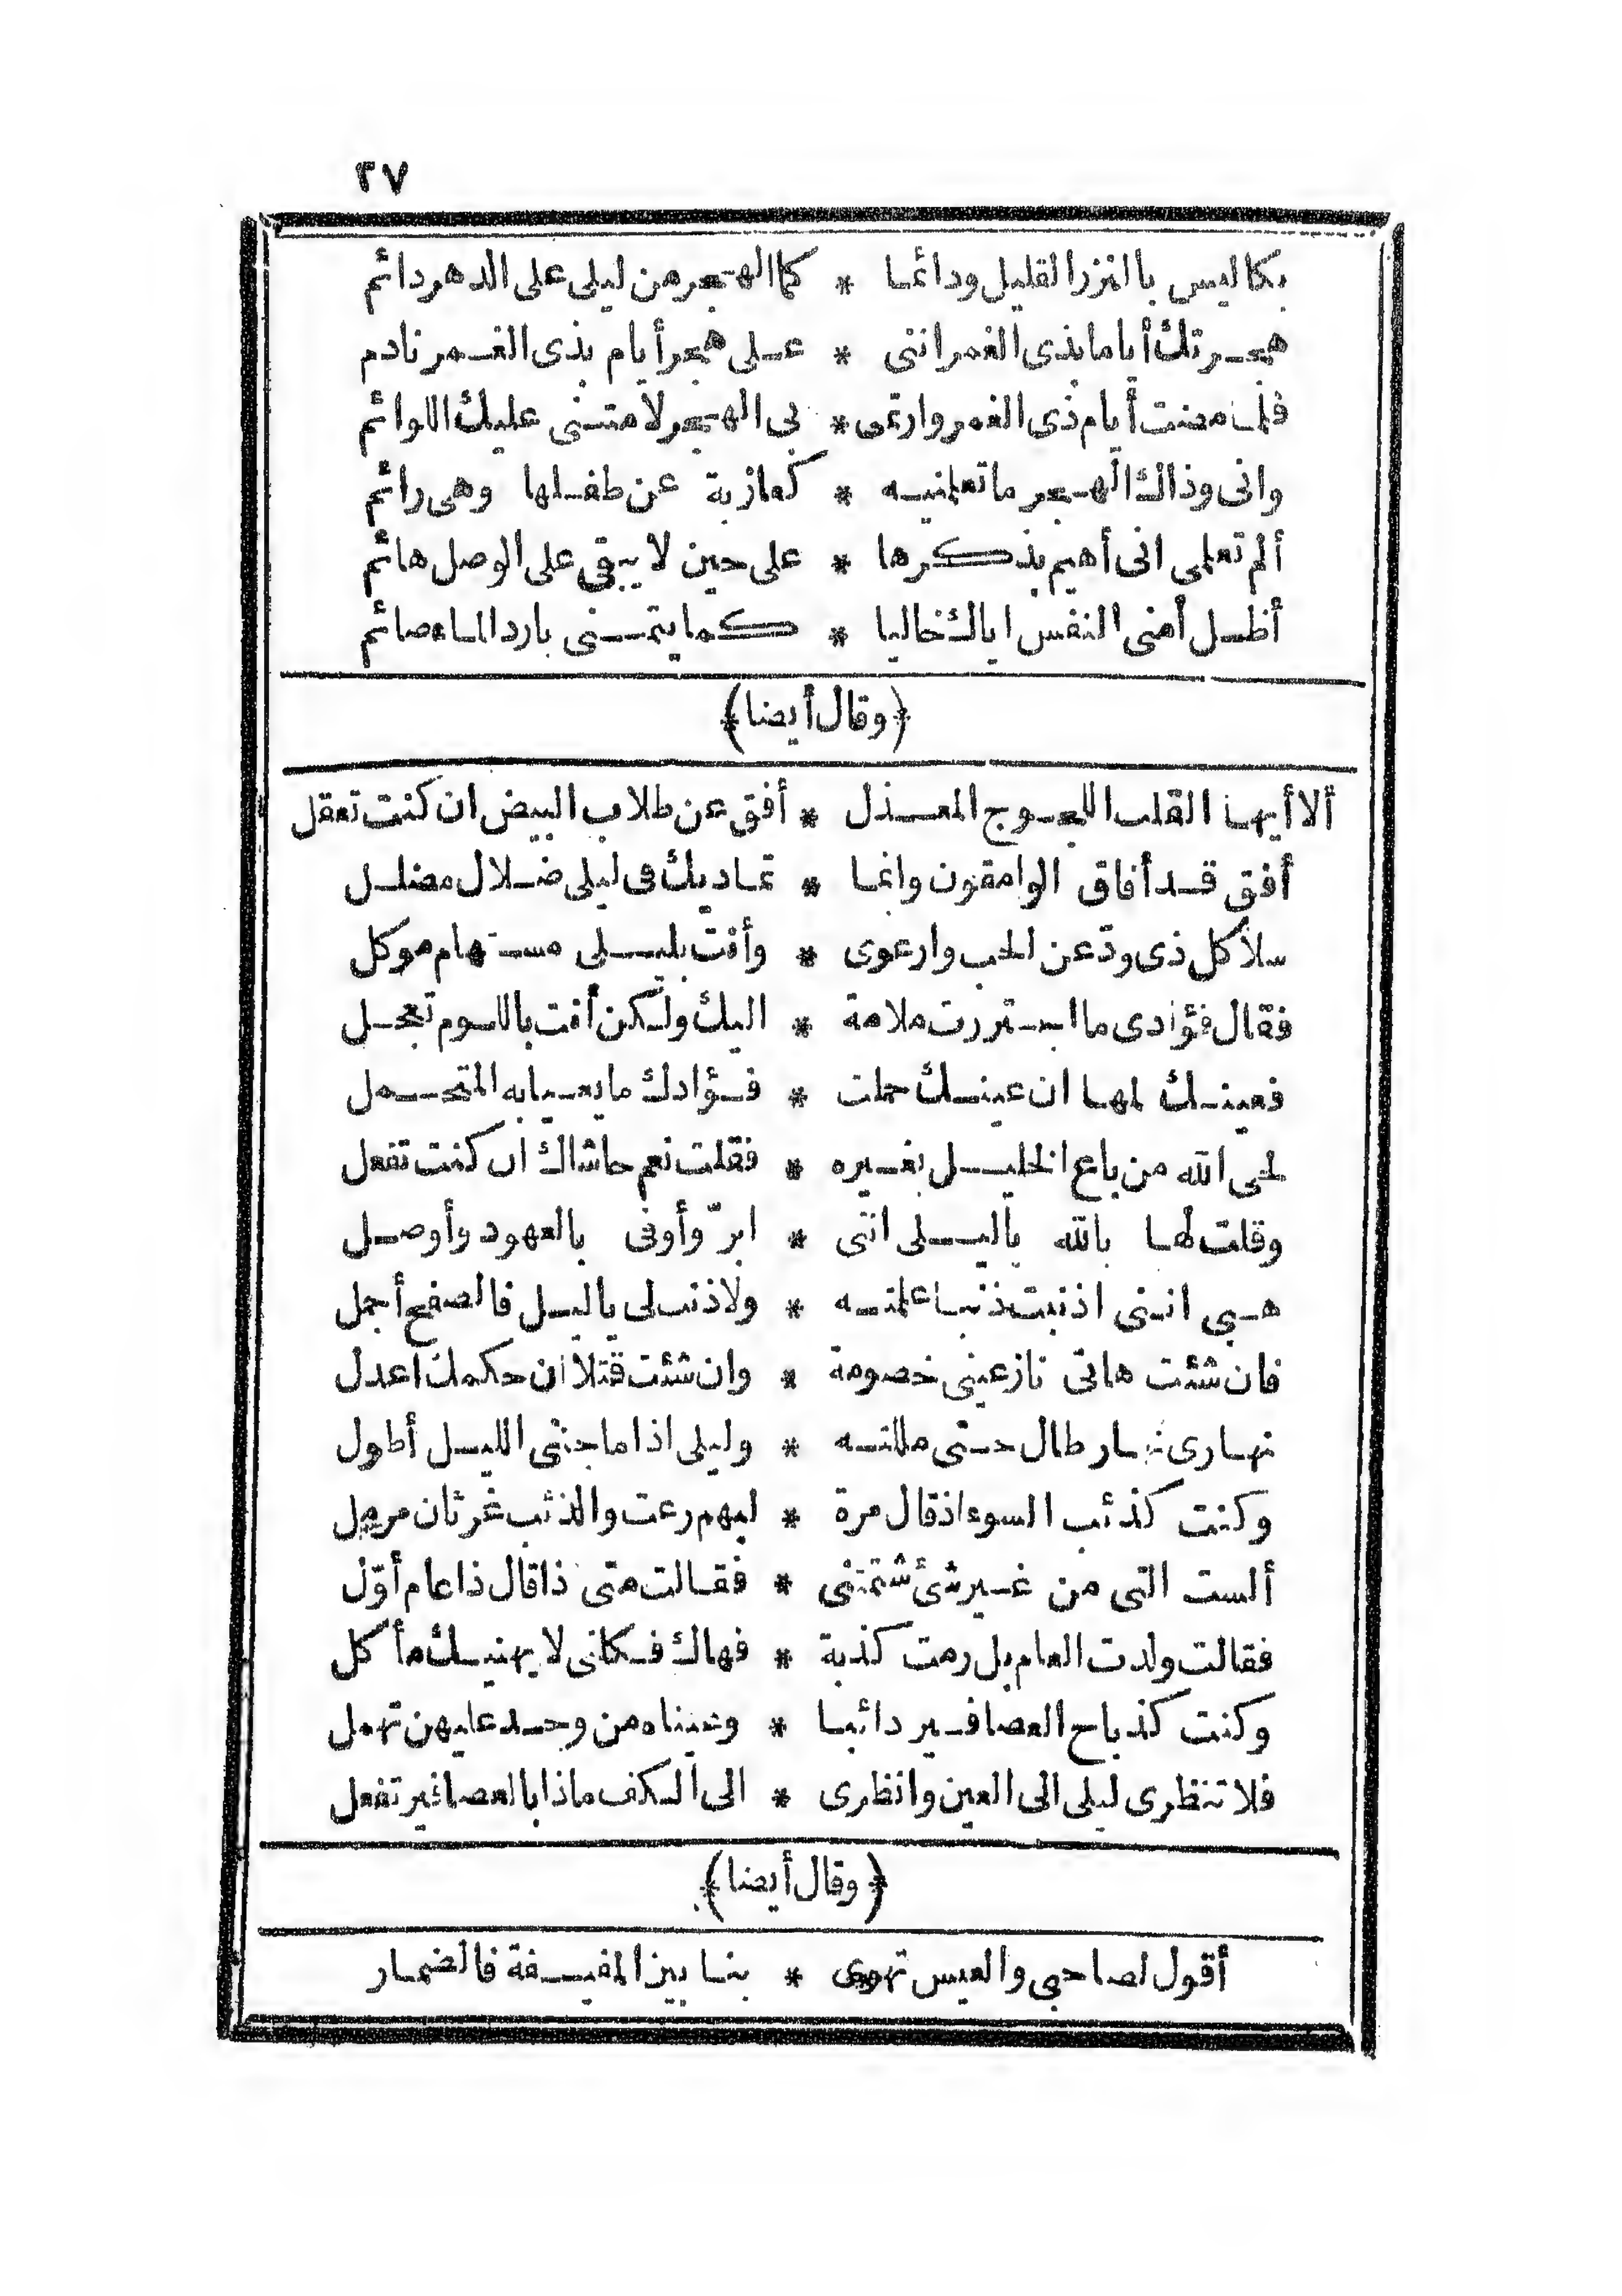 ٢٧
بكا ليس بالنزر القليل ودائما * كما الهجر من ليلى على الدهر دائم
هجرتك أياما بذى الغمر اننى * على هجر أيام بذى الغمر نادم
فلما مضت أيام ذى الغمر وارتمى * بى الهجر لامتنى عليك اللوائم
وانى وذاك الهجر ما تعلمينه * كعازبة عن طفلها وهى رائم
ألم تعلمى انى أهيم بذكرها * على حين لا يبقى على الوصل هائم
أظل أمنى النفس اياك خاليا * كما يتمنى بارد الماء صائم
﴿وقال أيضا﴾
ألا أيها القلب اللجوج المعذل * أفق عن طلاب البيض ان كنت تعقل
أفق قد أفاق الوامقون وانما * تماديك فى ليلى ضلال مضلل
سلا كل ذى ود عن الحب وارعوى * وأنت بليلى مستهام موكل
فقال فؤادى ما اجتررت ملامة * اليك ولكن أنت باللوم تعجل
فعينك لمها ان عينك حملت * فؤادك ما يعيا به المتحمل
لحى الله من باع الخليل بغيره * فقلت نعم حاشاك ان كنت تفعل
وقلت لها بالله ياليلى اننى * ابرّ وأوفى بالعهود وأوصل
هبى اننى اذنبت ذنبا علمته * ولا ذنب لى ياليل فالصفح أجمل
فان شئت هاتى نازعينى خصومة * وان شئت قتلا ان حكمك اعدل
نهارى نهار طال حتى مللته * وليلى اذا ما جننى الليل أطول
وكنت كذئب السوء اذ قال مرة * لبهم رعت والذئب غرثان مرمل
ألست التى من غير شئ شتمتنى * فقالت متى ذا قال ذا عام أوّل
فقالت ولدت العام بل رمت كذبة * فهاك فكلنى لا يهنيك مأكل
وكنت كذباح العصافير دائبا * وعيناه من وجد عليهن تهمل
فلا تنظرى ليلى الى العين وانظرى * الى الكف ماذا بالعصافير تفعل
﴿وقال أيضا﴾
أقول لصاحبى والعيس تهوى * بنا بين المنيفة فالضمار